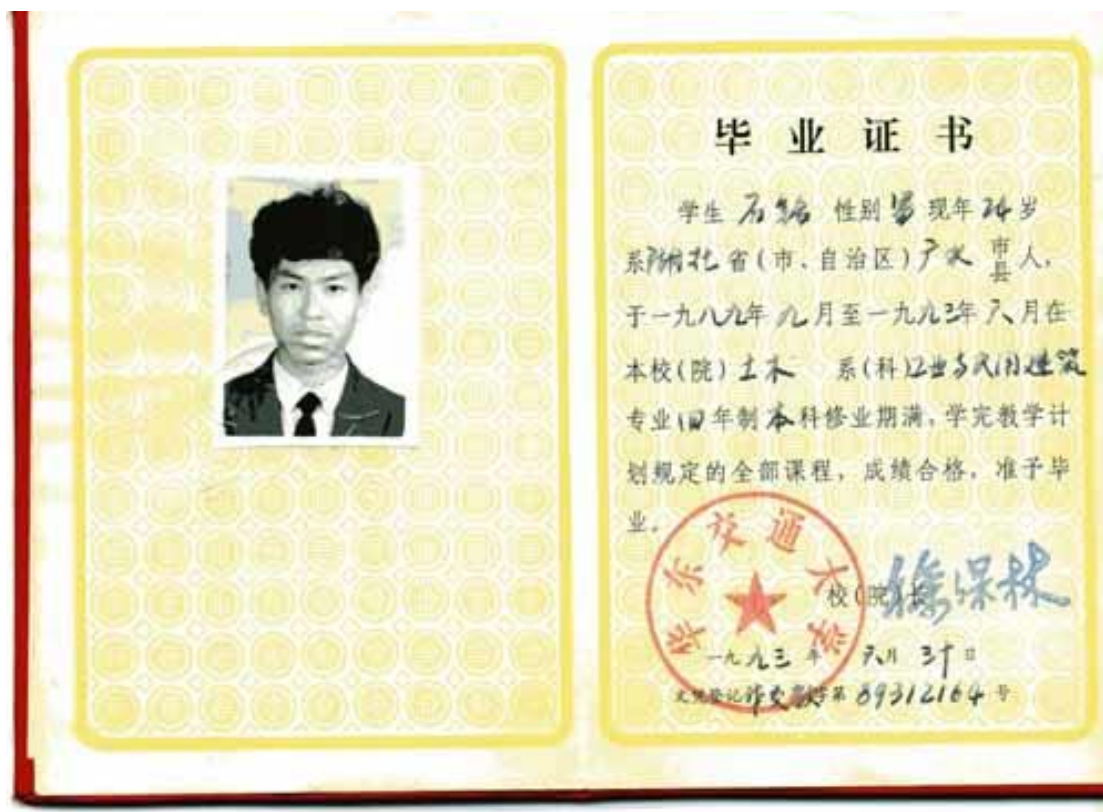 毕业证书
学生 石 性别 男 现年 24 岁
系 湖北 省(市、自治区) 广水 市县人,
于一九八九年 九 月至一九九三年 六 月在
本校(院) 土木 系(科) 工业与民用建筑
专业 四 年制 本 科修业期满,学完教学计
划规定的全部课程,成绩合格,准予毕
业。
华东交通大学
校(院)长
一九九三 年 六月 三十日
文凭登记 第 89312164 号